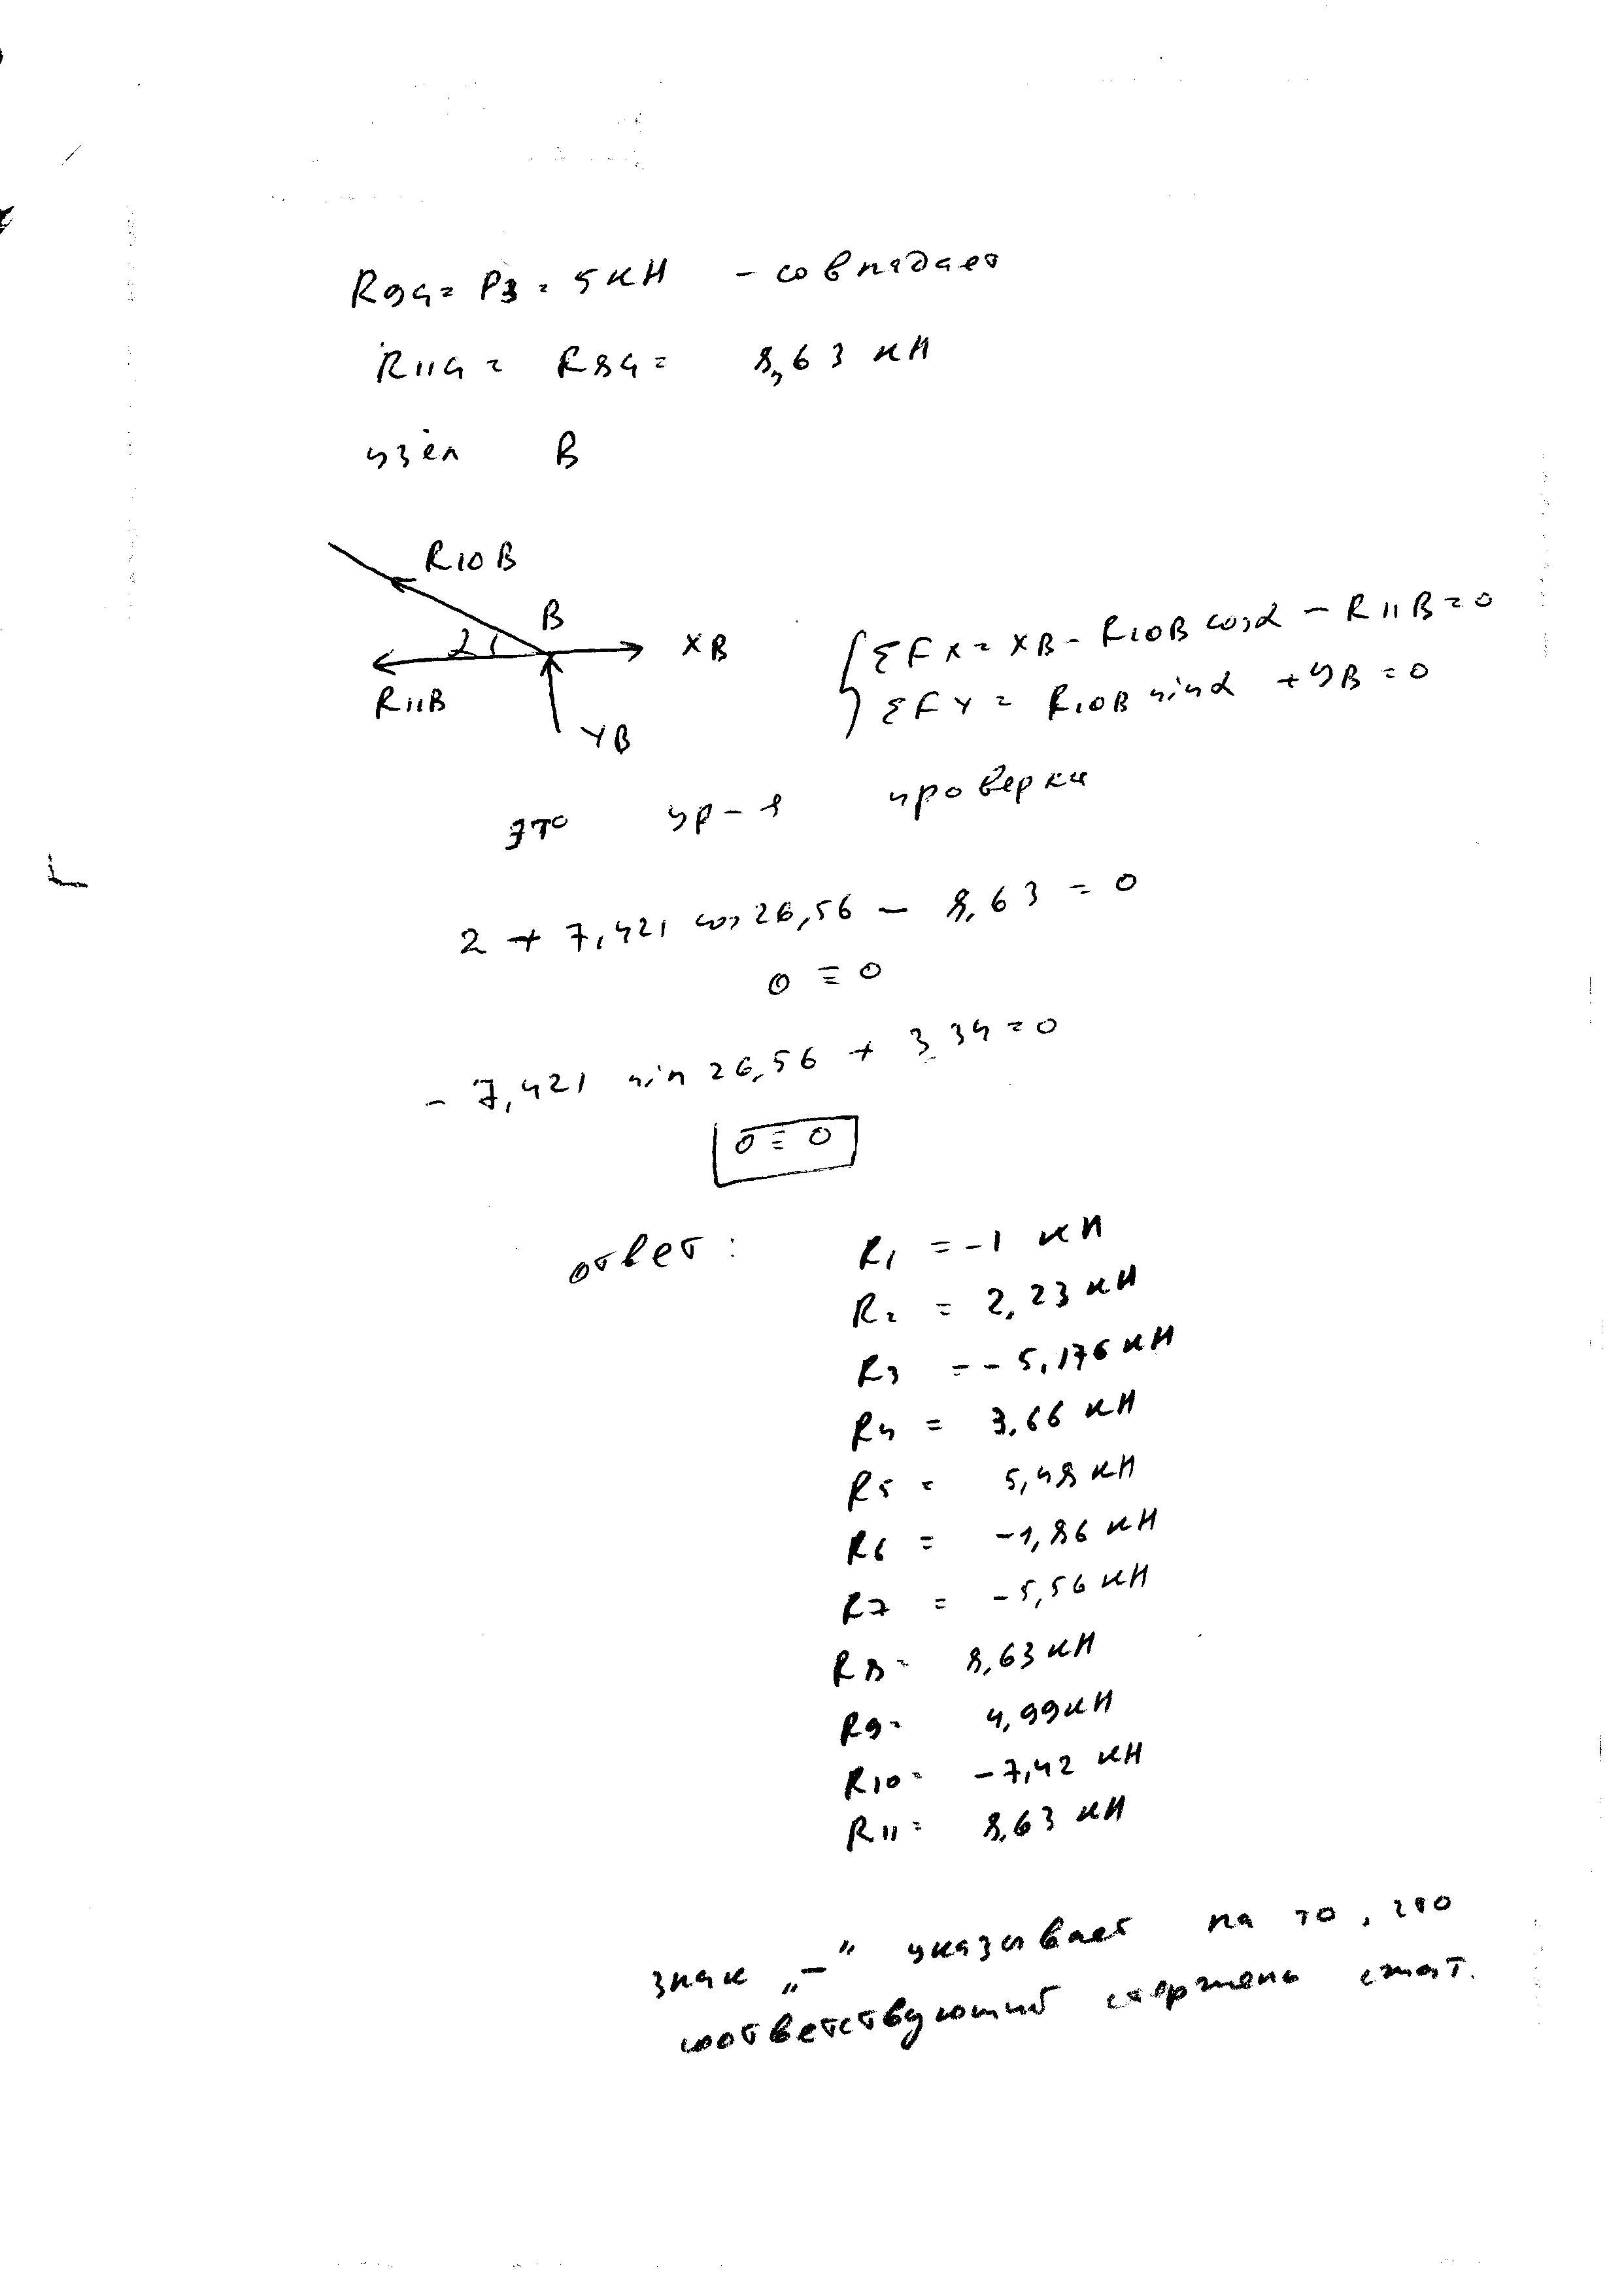 R9G = P3 = 5 кН - совпадает
R11G = R8G = 8,63 кН
узел B
R10B
B
α
XB
R11B
YB
ΣFX = XB - R10B cosα - R11B = 0
ΣFY = R10B sinα + YB = 0
это ур-я проверки
2 + 7,421 cos 26,56 - 8,63 = 0
0 ≡ 0
- 7,421 sin 26,56 + 3.34 = 0
0 ≡ 0
ответ:
R1 = -1 кН
R2 = 2,23 кН
R3 = - 5,176 кН
R4 = 3,66 кН
R5 = 5,48 кН
R6 = -1,86 кН
R7 = -5,56 кН
R8 = 8,63 кН
R9 = 4,99 кН
R10 = -7,42 кН
R11 = 8,63 кН
знак „-" указывает на то, что
соответствующий стержень сжат.